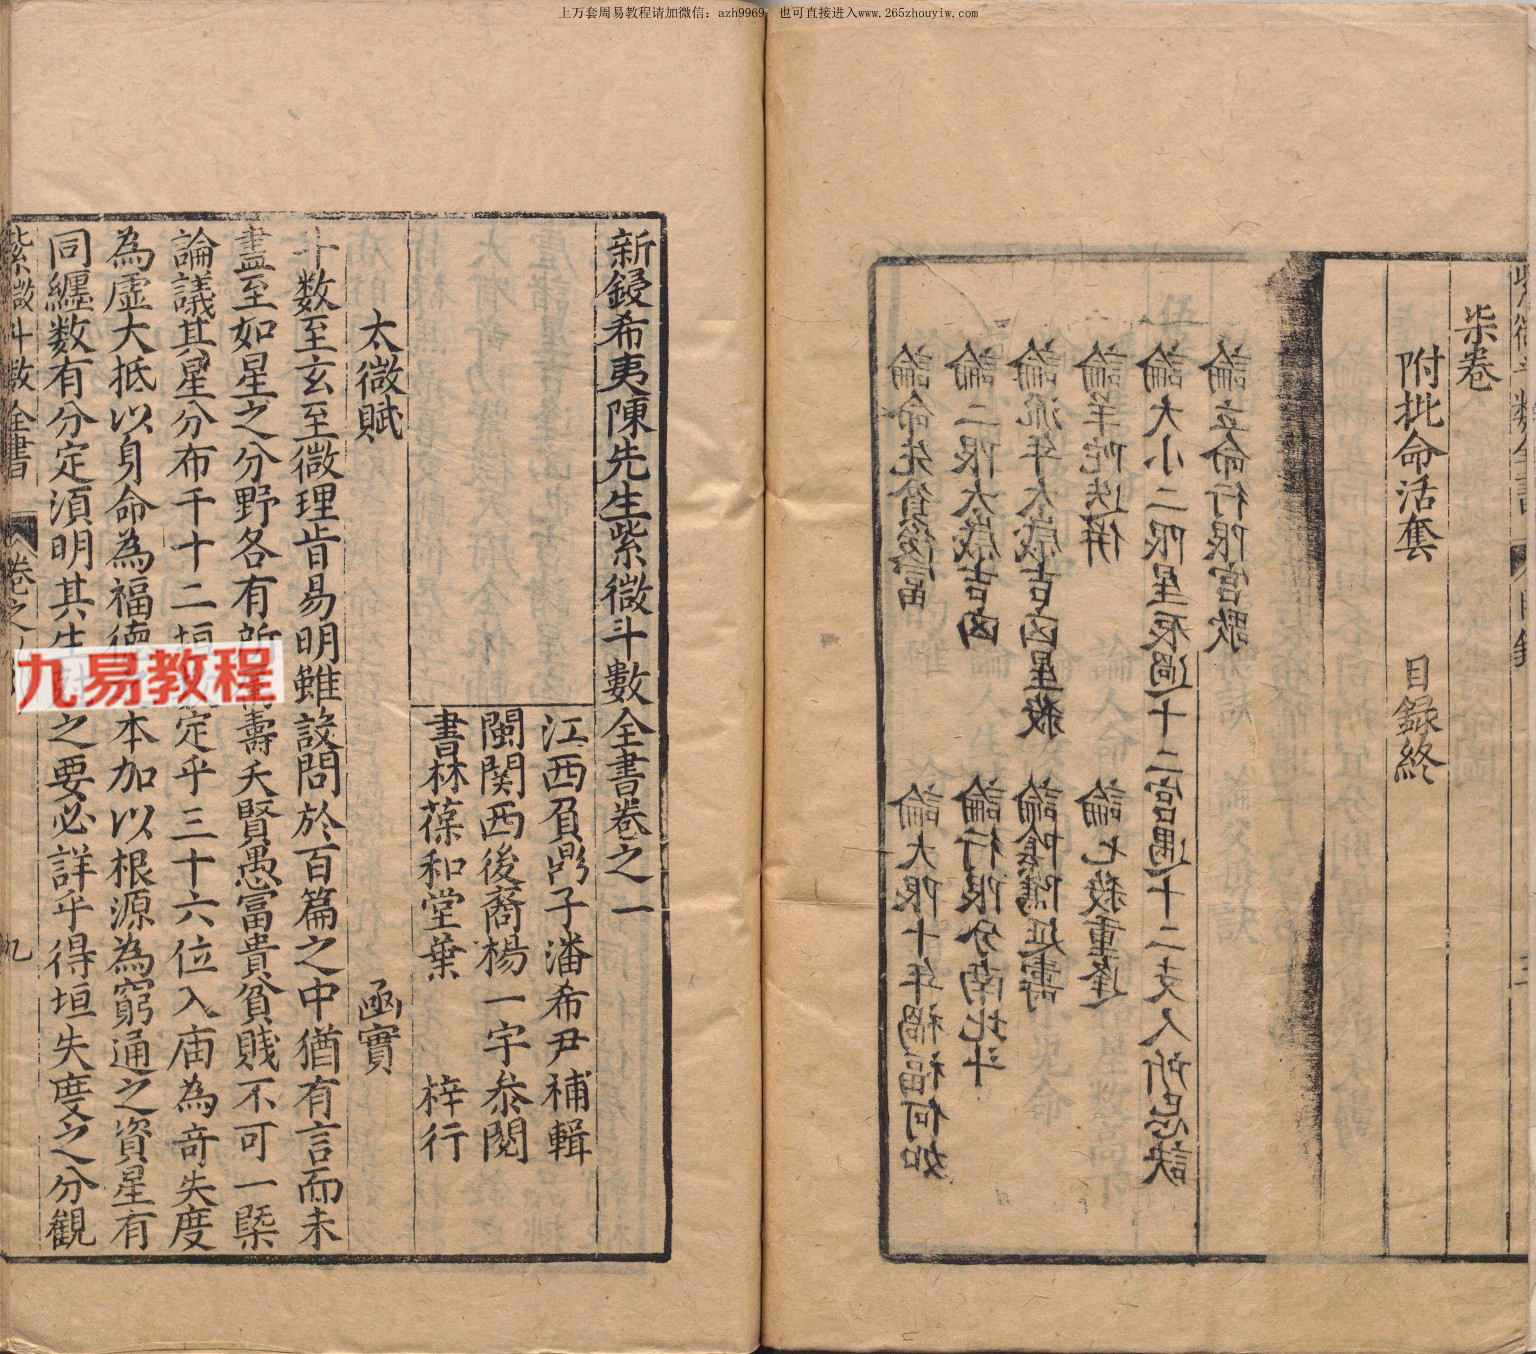 上万套周易教程请加微信：azh9969 也可直接进入www.265zhouyiw.com
柒卷
附批命活套 目録終
論立命行限宮歌
論大小二限星辰過十二宮遇十二支人所忌訣
論羊陀迭併 論七殺重逢
論流年太歲吉凶星殺 論陰隲延壽
論二限太歲吉凶 論行限分南北斗
論命先貧後富 論大限十年禍福何如
新鋟希夷陳先生紫微斗數全書卷之一
江西負鼎子潘希尹補輯
閩関西後裔楊一宇叅閱
書林葆和堂葉 梓行
太微賦 函實
斗数至玄至微理旨易明雖設問於百篇之中猶有言而未
盡至如星之分野各有所壽夭賢愚富貴貧賎不可一槩
論議其星分布千十二垣定乎三十六位入庙為奇失度
為虛大抵以身命為福德本加以根源為窮通之資星有
同纏数有分定須明其生之要必詳乎得垣失度之分觀
紫微斗數全書 卷之 九
九易教程